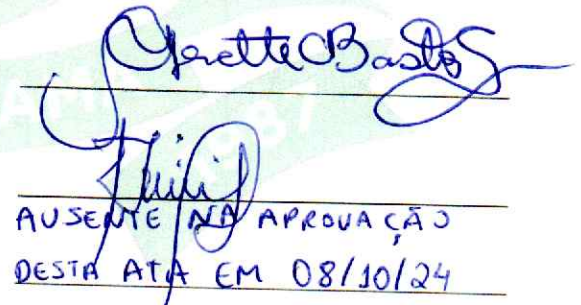 Bastos
AUSENTE NA APROVAÇÃO
DESTA ATA EM 08/10/24